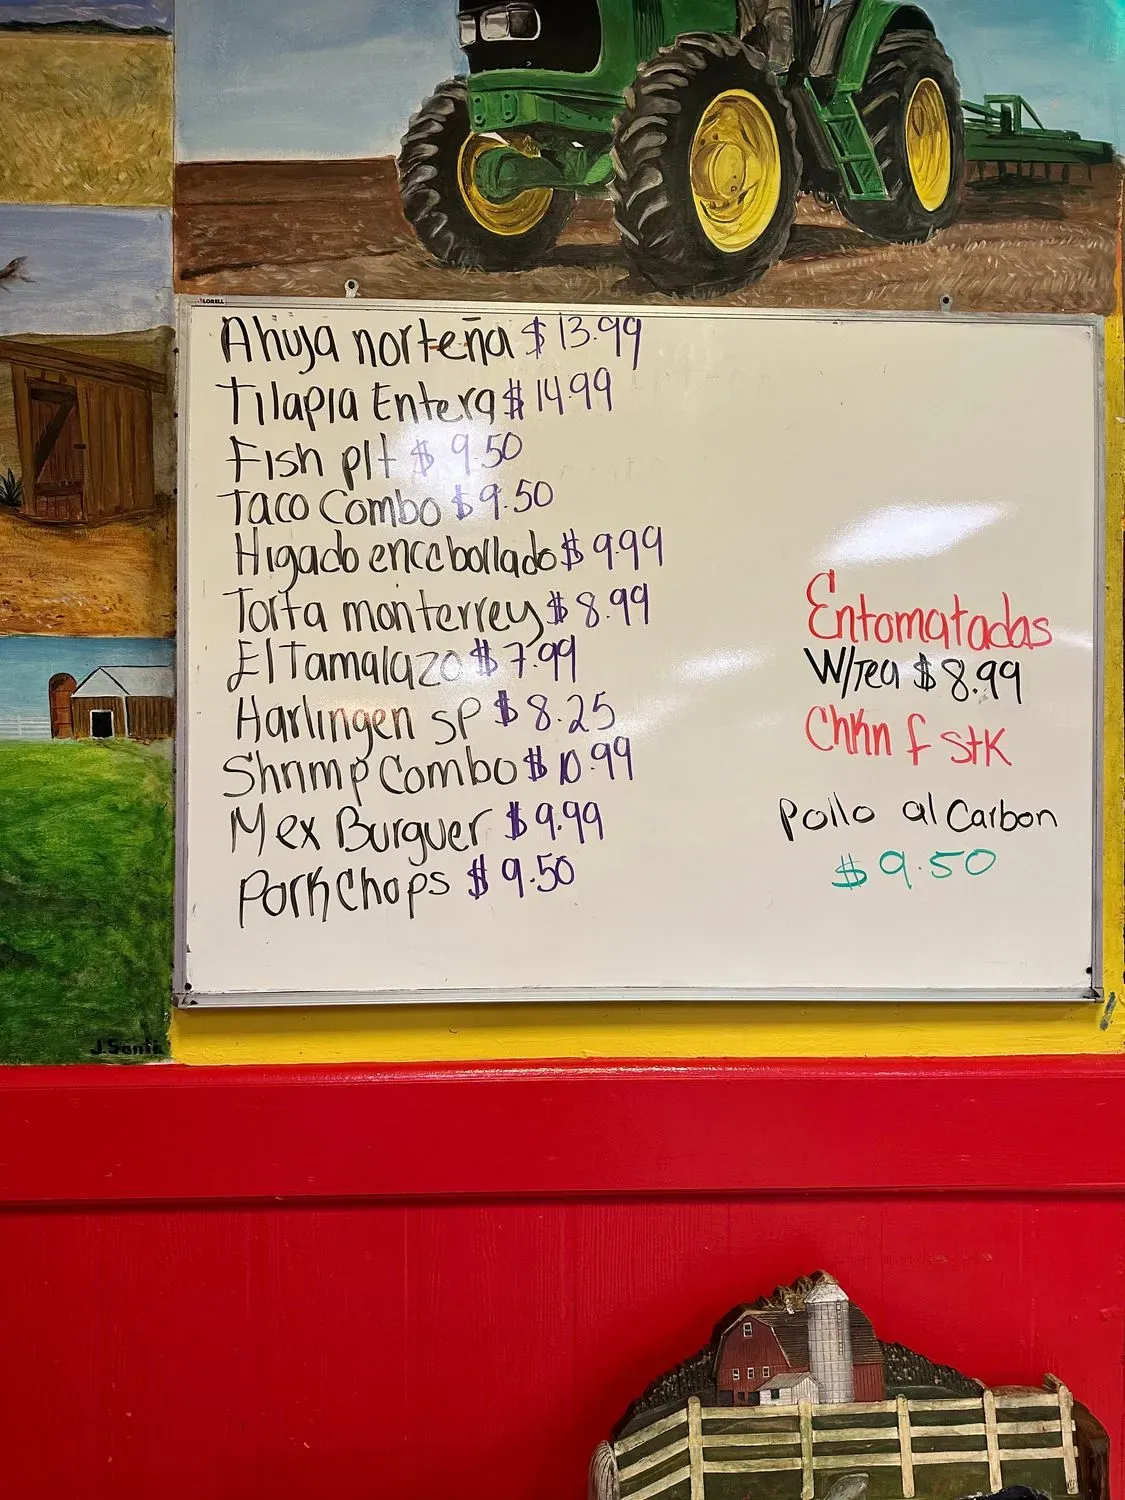 LORELL
Ahuja norteña $13.99
Tilapia Entera $14.99
Fish plt $9.50
Taco Combo $9.50
Higado encebollado $9.99
Torta monterrey $8.99
El Tamalazo $7.99
Harlingen sp $8.25
Shrimp Combo $10.99
Mex Burguer $9.99
Pork Chops $9.50
Entomatadas
W/Tea $8.99
Chkn f stk
Pollo al Carbon
$9.50
J. Santa